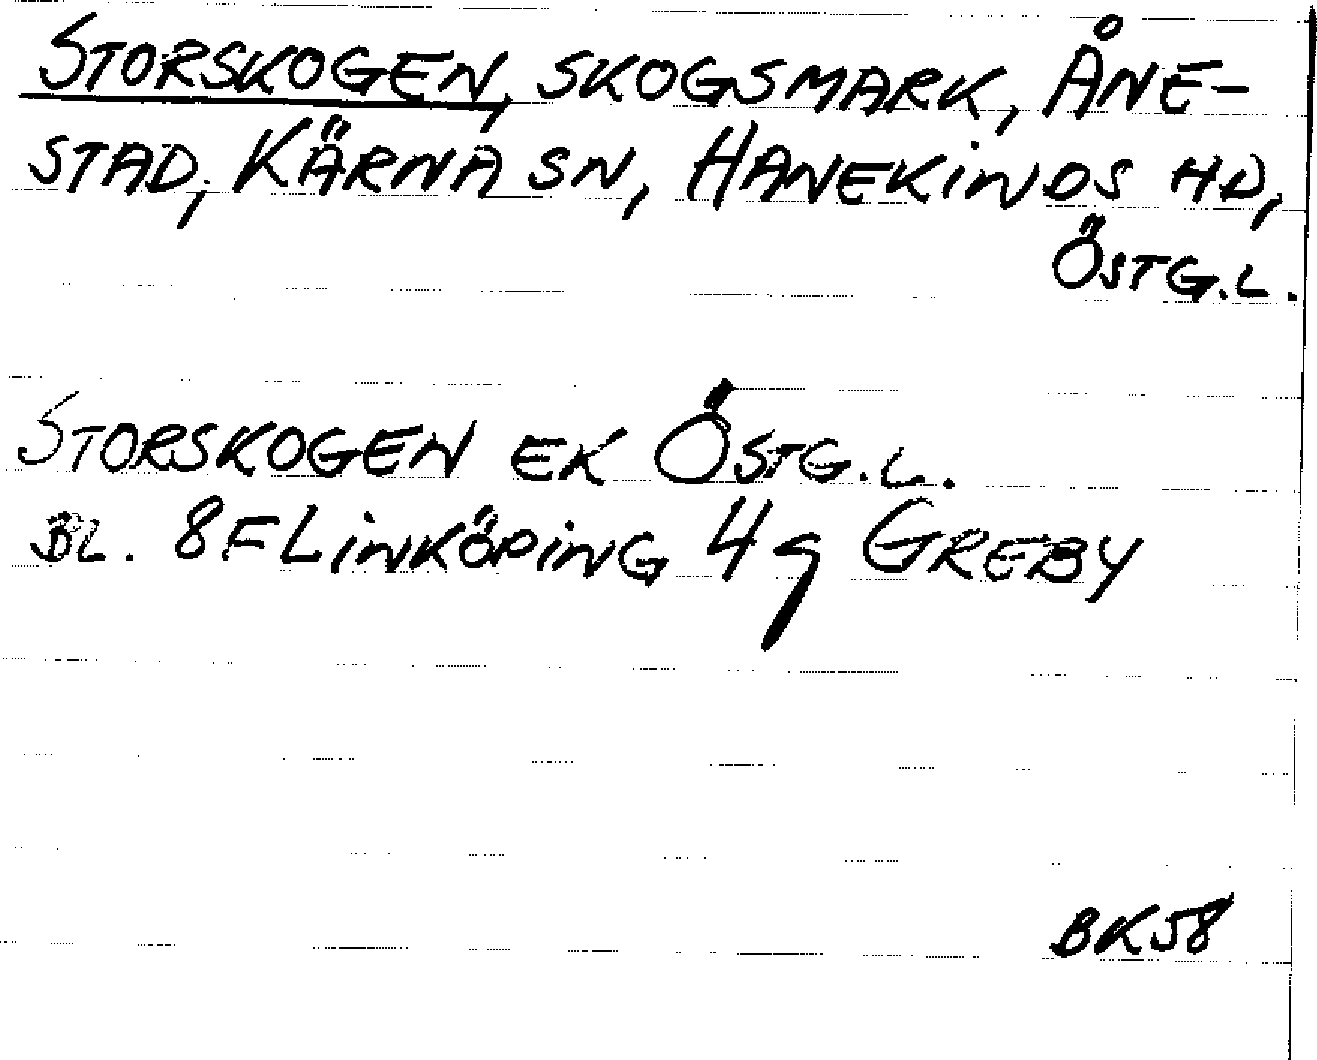 STORSKOGEN, SKOGSMARK, ÅNE-
STAD, KÄRNA SN, HANEKINDS HD,
ÖSTG.L.
STORSKOGEN EK ÖSTG.L.
BL. 8F LINKÖPING 4g GREBY
BK58